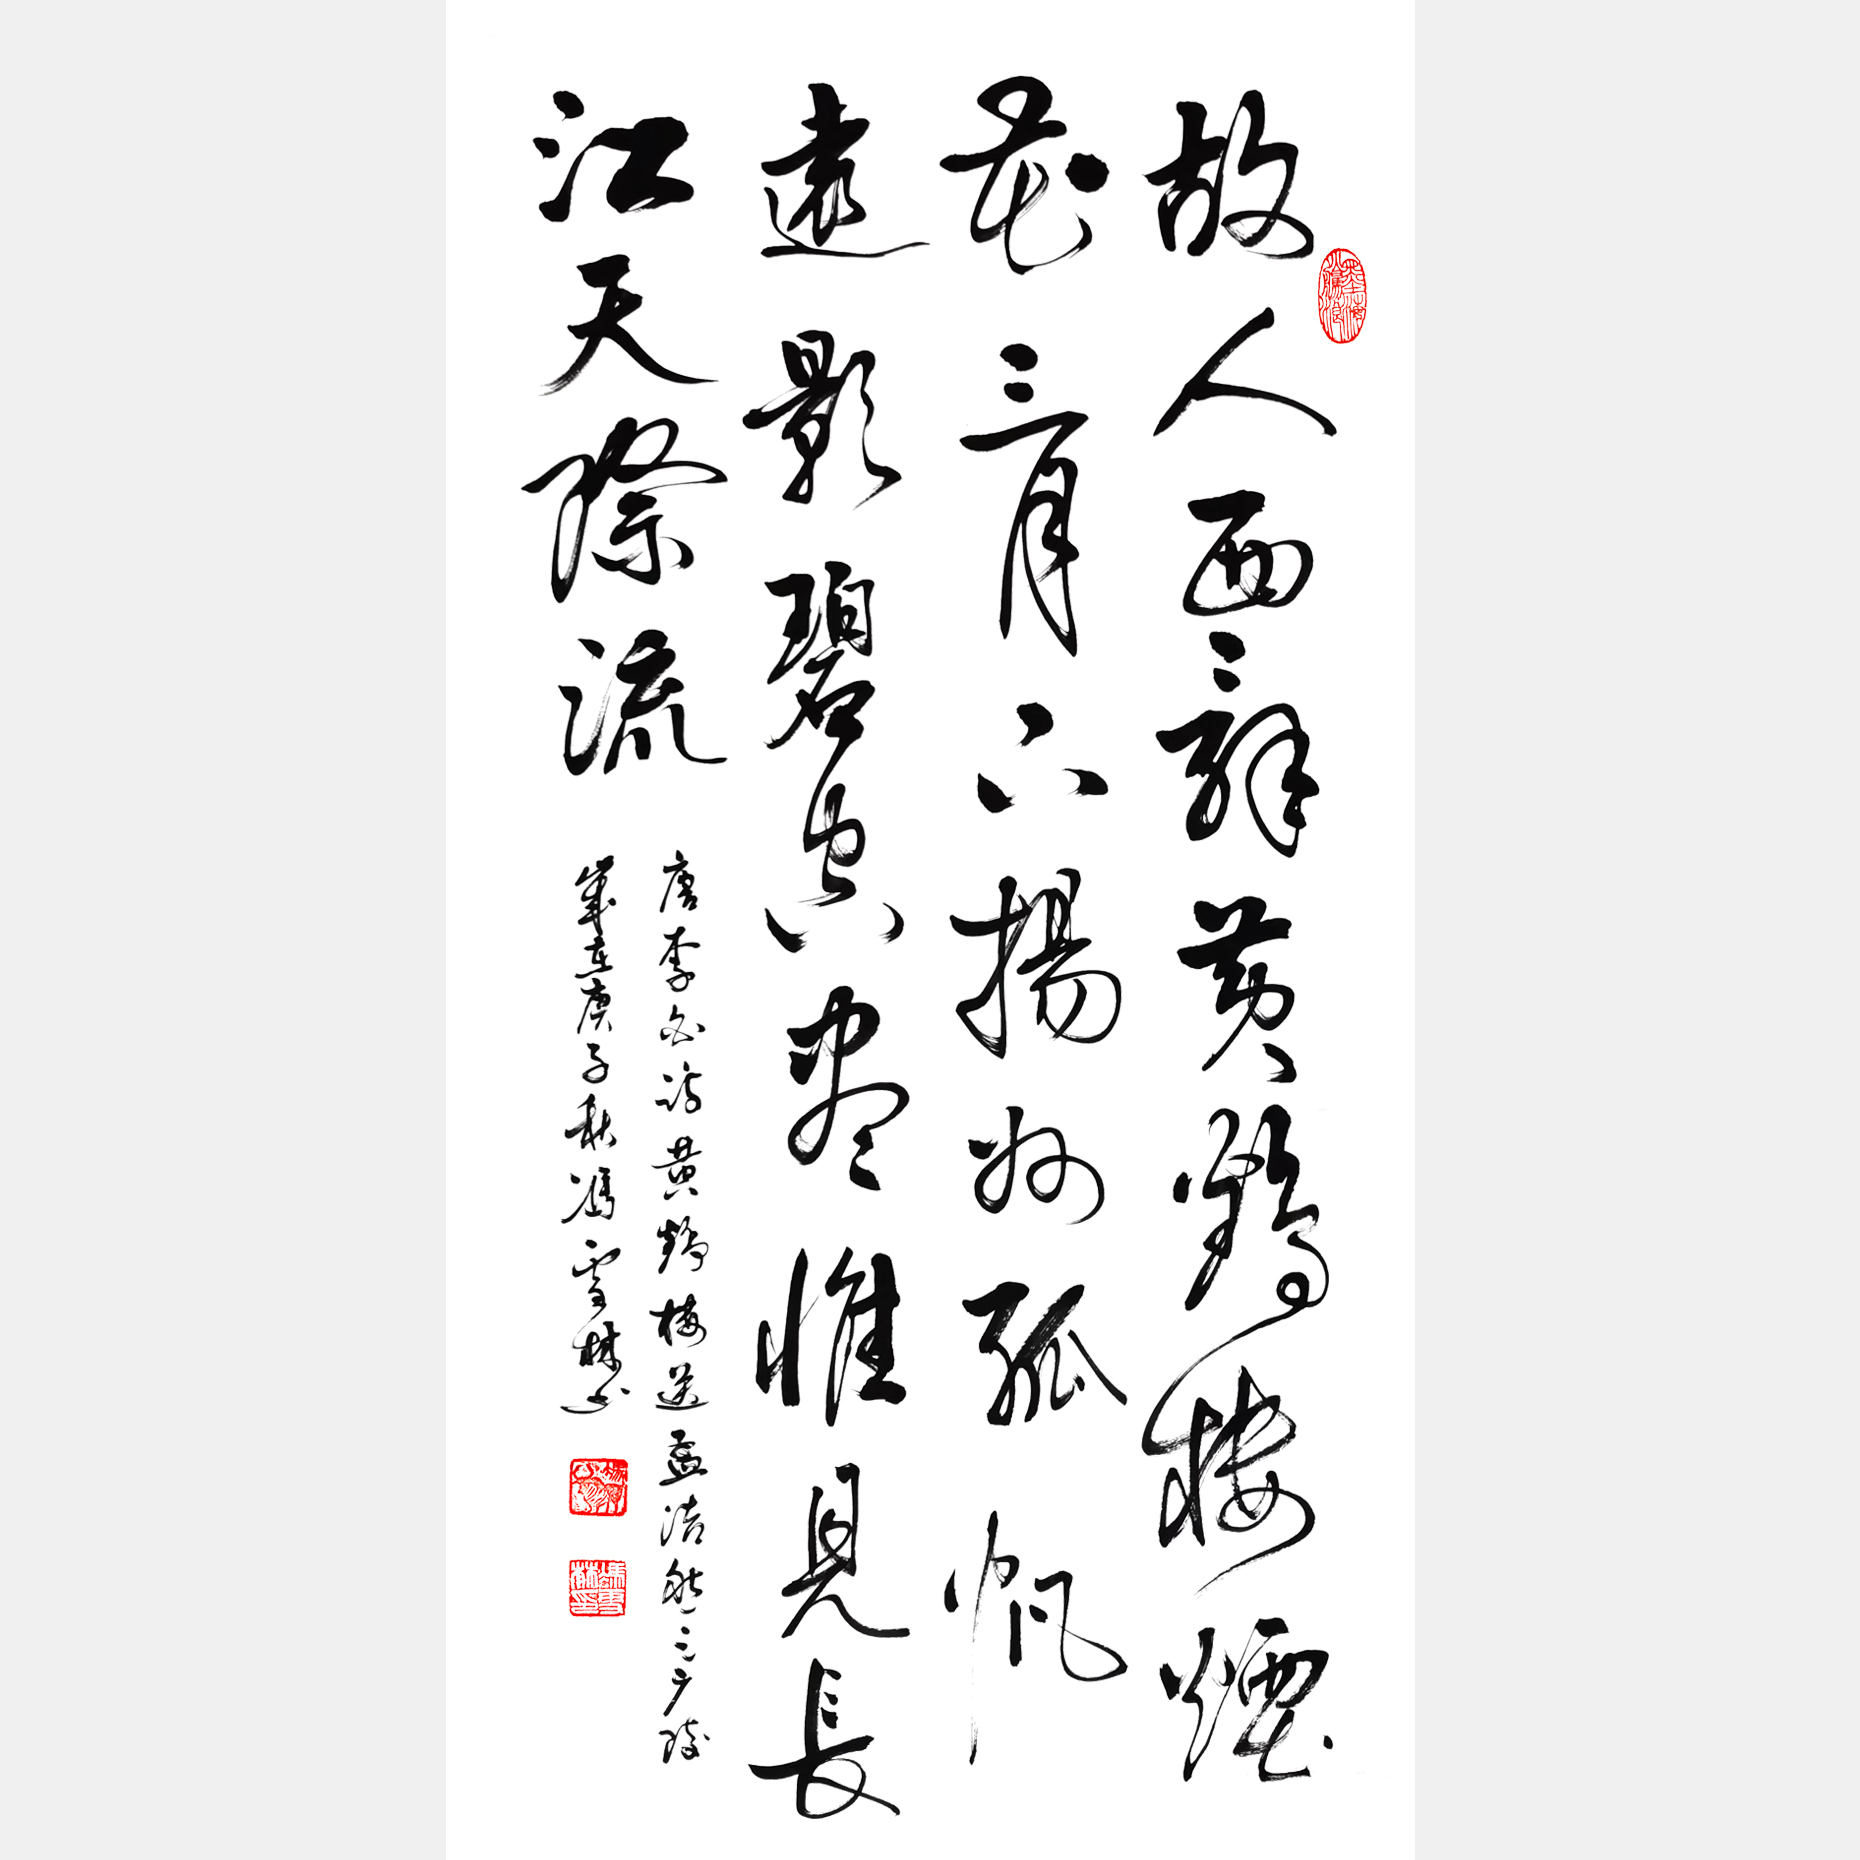 故人西辭黃鶴樓煙
花三月下揚州孤帆
遠影碧空盡惟見長
江天際流
唐李白詩黃鶴樓送孟浩然之廣陵
歲在庚子秋馮雪林書